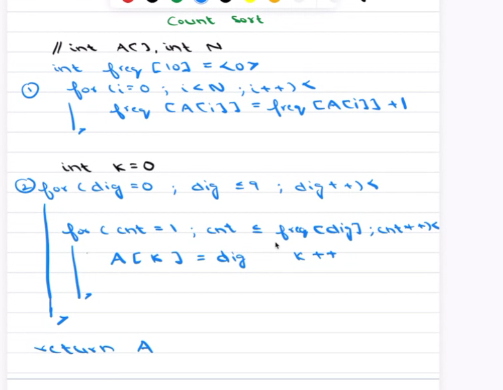 Count Sort
// int A[], int N
int freq [10] = {0}
① for (i=0 ; i<N ; i++){
freq [A[i]] = freq [A[i]] +1
}
int k=0
② for (dig=0 ; dig ≤ 9 ; dig++){
for (cnt = 1 ; cnt ≤ freq[dig] ; cnt++){
A[k] = dig k++
}
}
return A